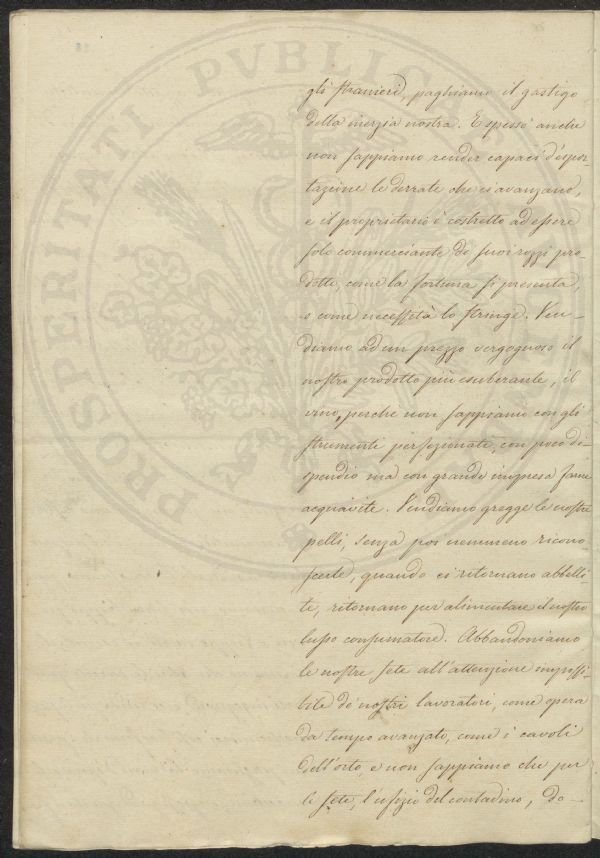 PROSPERITATI PVBLICAE
gli stranieri, paghiamo il gastigo
della inerzia nostra. E spesso anche
non sappiamo render capaci d'espor-
tazione le derrate che ci avanzano,
e il proprietario è costretto ad essere
solo commerciante de' suoi rozzi pro-
dotti, come la fortuna si presenta,
o come necessità lo stringe. Ven-
diamo ad un prezzo vergognoso il
nostro prodotto più esuberante, il
vino, perchè non sappiamo con gli
strumenti perfezionati, con poco di-
spendio ma con grande impresa farne
acquavite. Vendiamo gregge le nostre
pelli, senza poi nemmeno ricono
scerle, quando ci ritornano abbelli-
te, ritornano per alimentare il nostro
lusso consumatore. Abbandoniamo
le nostre sete all'attenzione
de' nostri lavoratori, come opera
da tempo avanzato, come i cavoli
dell'orto, e non sappiamo che per
le sete, l'ofizio del contadino, do-